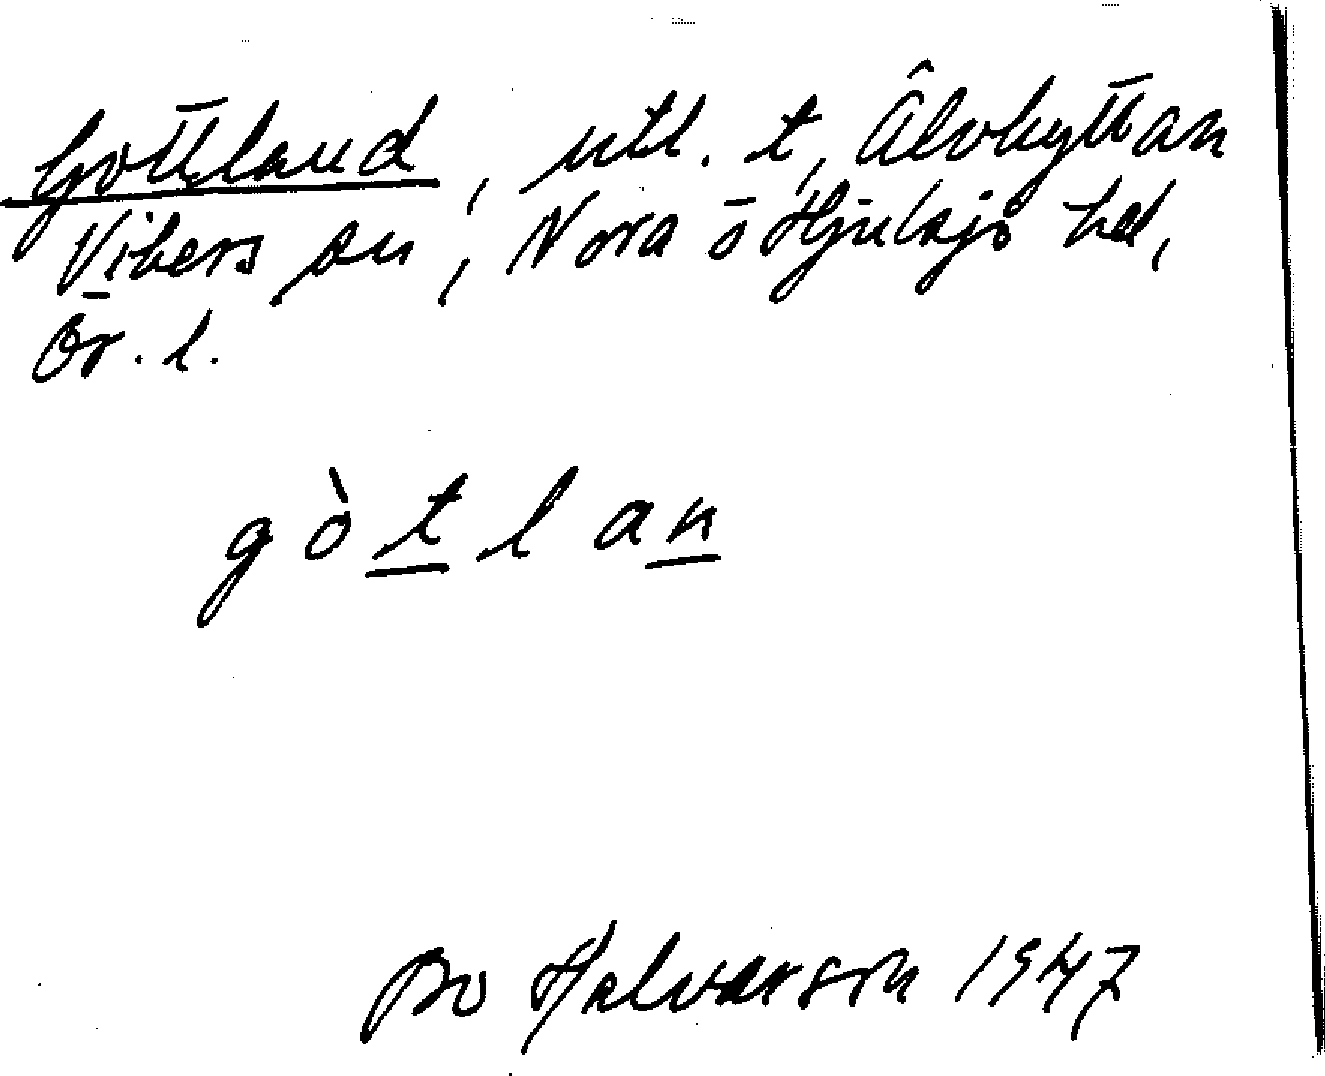 Gottland, utl. t, Älvhyttan
Vikers sn, Nora o Hjulsjö hd,
Ör. l.
gòtlan
Bo Halvarson 1947